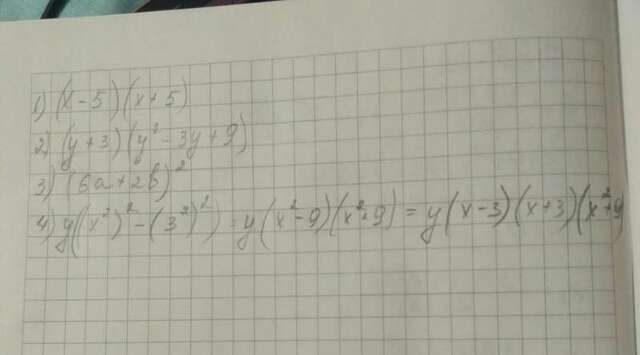 1) (x-5)(x+5)
2) (y+3)(y²-3y+9)
3) (6a+2b)²
4) y((x²)²-(3²)²) = y(x²-9)(x²+9) = y(x-3)(x+3)(x²+9)